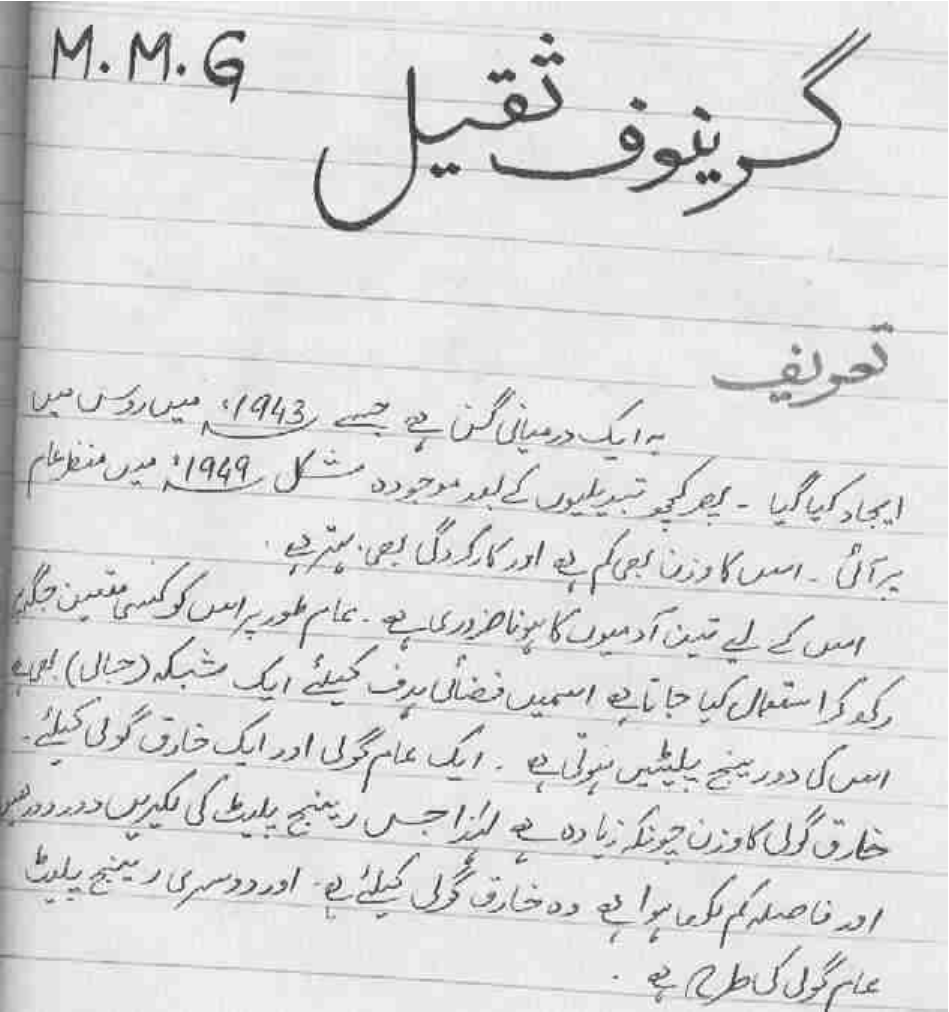 M.M.G
گرینوف ثقیل
تعریف
یہ ایک درمیانی گن ہے جسے 1943ء میں روس میں
ایجاد کیا گیا - پھر کچھ تبدیلیوں کے بعد موجودہ شکل 1949ء میں منظر عام
پر آئی - اس کا وزن بھی کم ہے اور کارکردگی بھی بہتر ہے .
اس کے لیے تین آدمیوں کا ہونا ضروری ہے - عام طور پر اس کو کسی متعین جگہ پر
رکھ کر استعمال کیا جاتا ہے اسمیں فضائی ہدف کیلئے ایک مشبکہ (جالی) بھی ہے
اس کی دو رینج پلیٹیں ہوتی ہے . ایک عام گولی اور ایک خارق گولی کیلئے .
خارق گولی کا وزن چونکہ زیادہ ہے لہٰذا جس رینج پلیٹ کی لکیریں دور دور ہیں
اور فاصلہ کم لکھا ہوا ہے وہ خارق گولی کیلئے ہے - اور دوسری رینج پلیٹ
عام گولی کی طرح ہے .